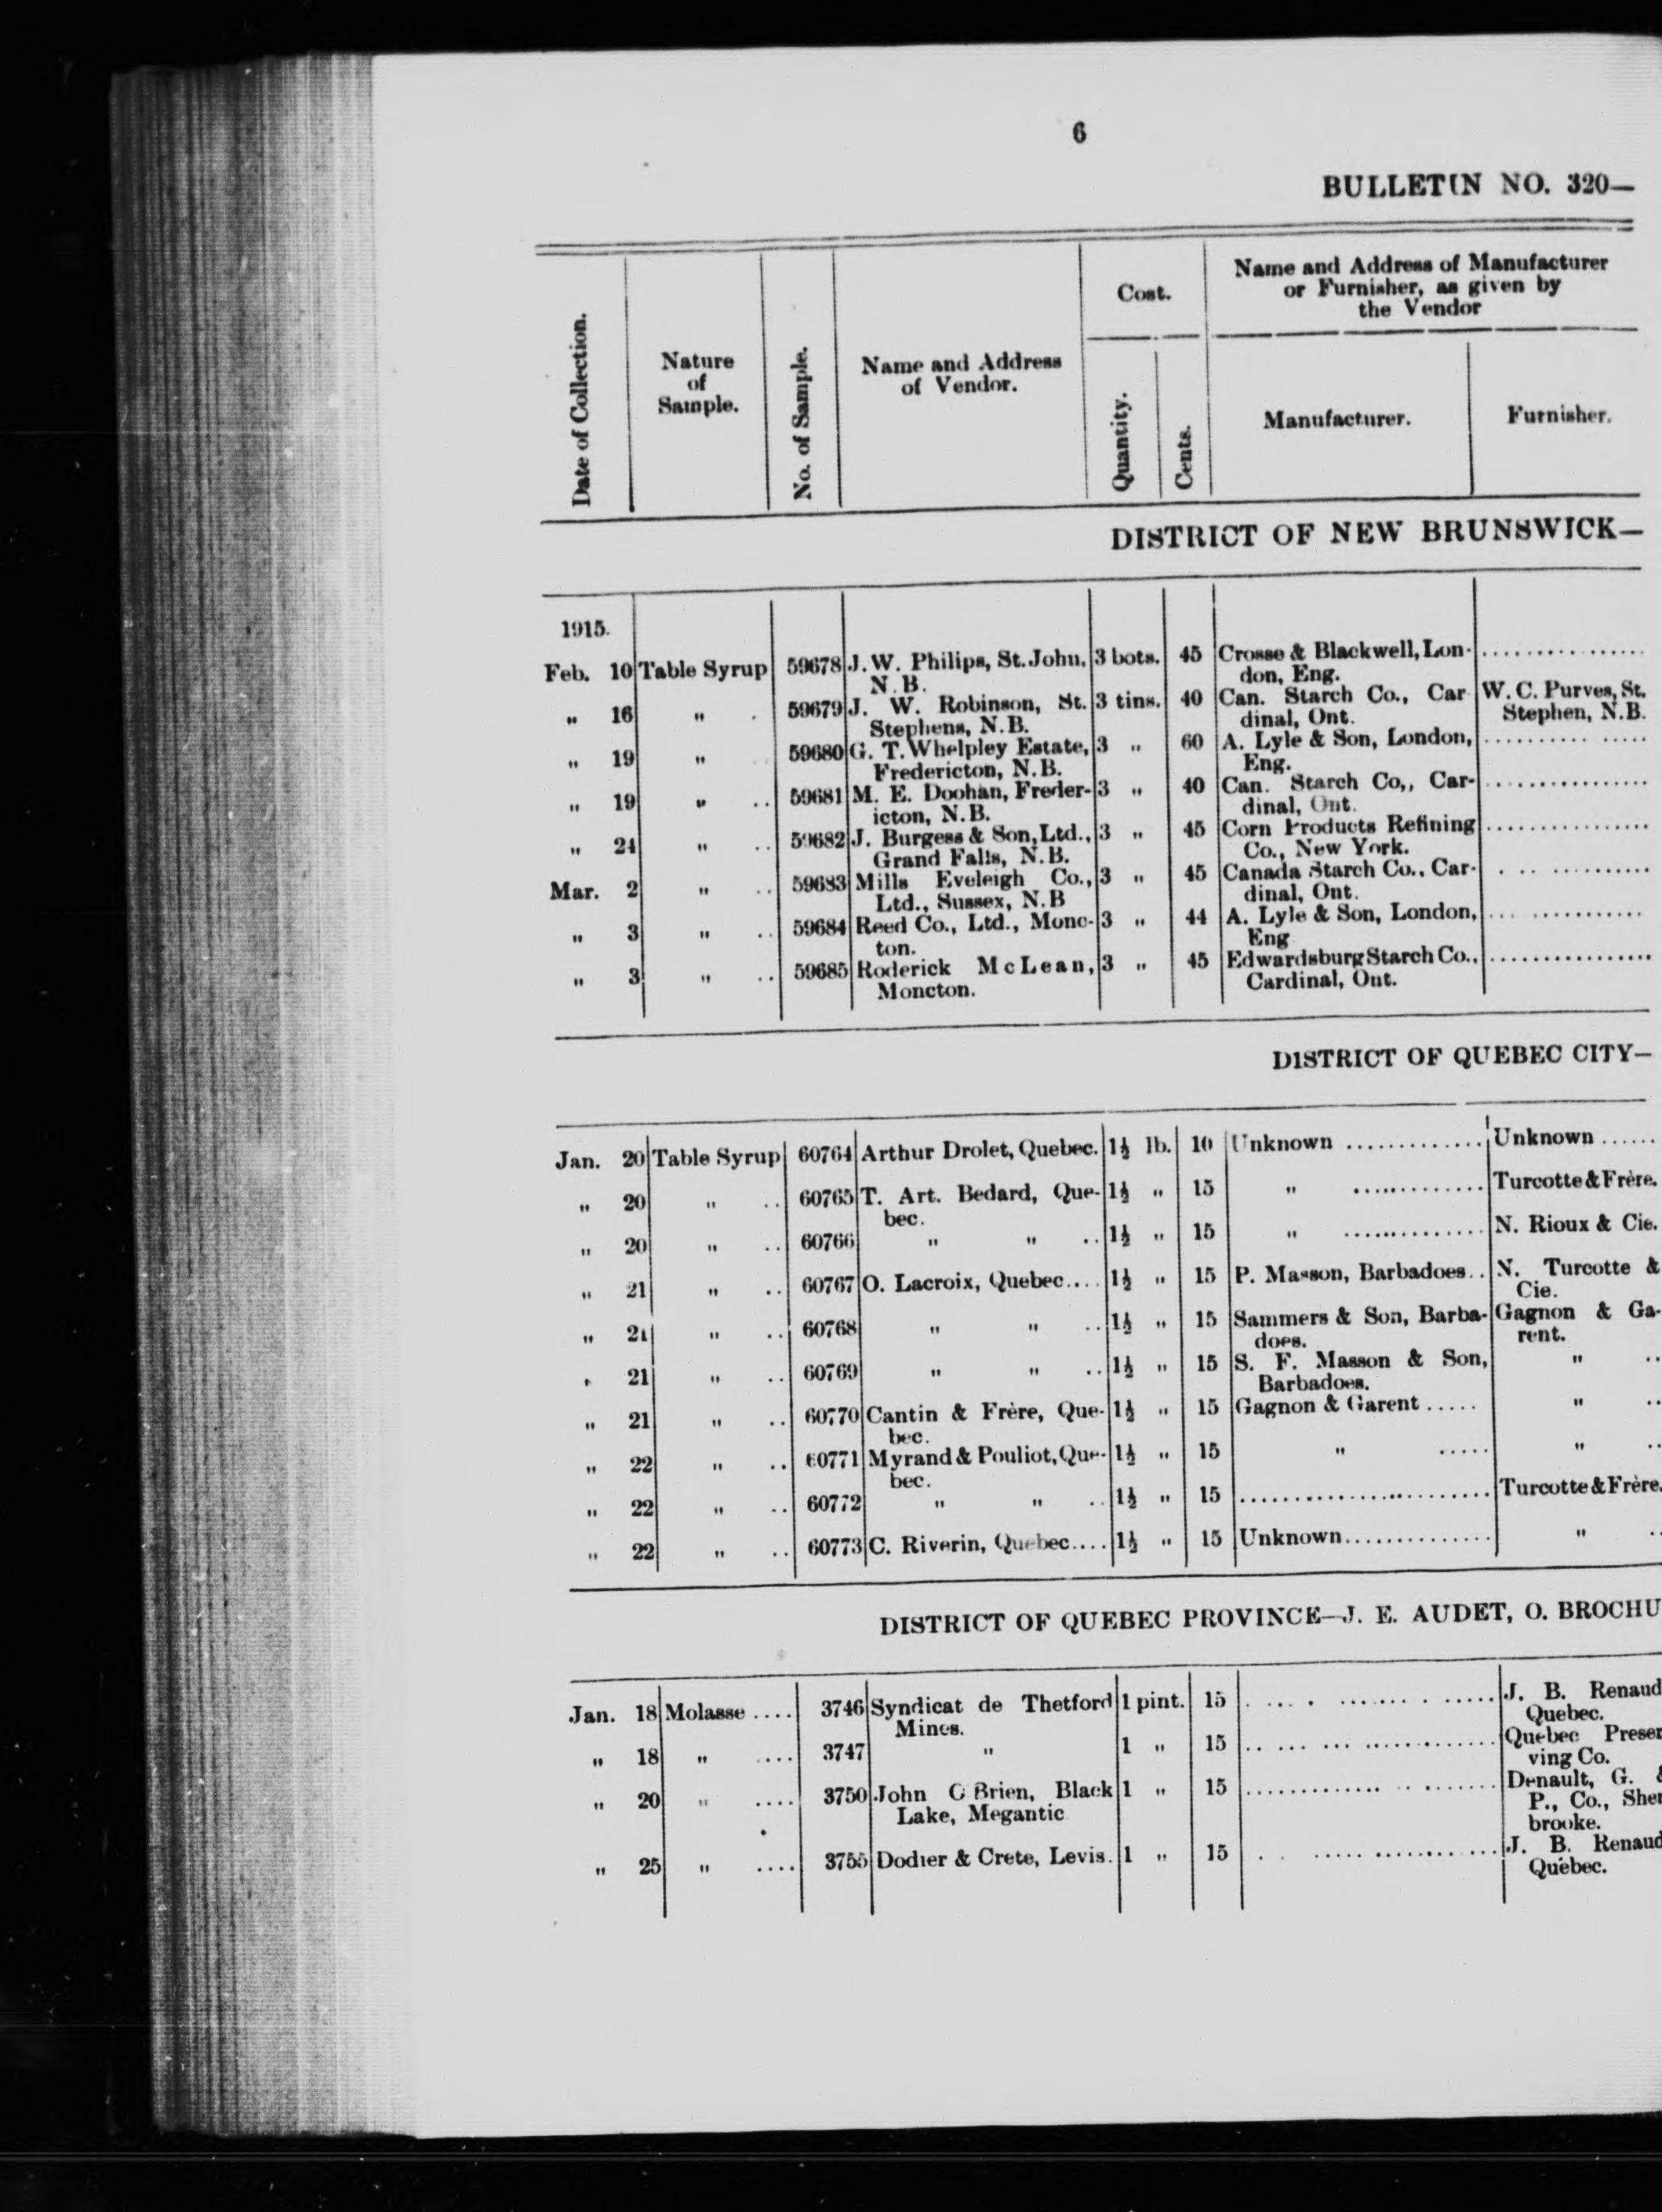 6
BULLETIN NO. 320—
Date of Collection.
Nature
of
Sample.
No. of Sample.
Name and Address
of Vendor.
Cost.
Quantity.
Cents.
Name and Address of Manufacturer
or Furnisher, as given by
the Vendor
Manufacturer.
Furnisher.
DISTRICT OF NEW BRUNSWICK—
1915.
Feb. 10 Table Syrup 59678 J. W. Philips, St. John, 3 bots. 45 Crosse & Blackwell, Lon- ................
N.B. don, Eng.
„ 16 „ . 59679 J. W. Robinson, St. 3 tins. 40 Can. Starch Co., Car W. C. Purves, St.
Stephens, N.B. dinal, Ont. Stephen, N.B.
„ 19 „ 59680 G. T. Whelpley Estate, 3 „ 60 A. Lyle & Son, London, .......... .....
Fredericton, N.B. Eng.
„ 19 „ .. 59681 M. E. Doohan, Freder- 3 „ 40 Can. Starch Co,, Car- ................
icton, N.B. dinal, Ont.
„ 24 „ .. 59682 J. Burgess & Son, Ltd., 3 „ 45 Corn Products Refining ................
Grand Falls, N.B. Co., New York.
Mar. 2 „ .. 59683 Mills Eveleigh Co., 3 „ 45 Canada Starch Co., Car- . .. ............
Ltd., Sussex, N.B dinal, Ont.
„ 3 „ .. 59684 Reed Co., Ltd., Monc- 3 „ 44 A. Lyle & Son, London, ... ............
ton. Eng
„ 3 „ .. 59685 Roderick McLean, 3 „ 45 Edwardsburg Starch Co., ................
Moncton. Cardinal, Ont.
DISTRICT OF QUEBEC CITY—
Jan. 20 Table Syrup 60764 Arthur Drolet, Quebec. 1½ lb. 10 Unknown ............. Unknown ......
„ 20 „ .. 60765 T. Art. Bedard, Que- 1½ „ 15 „ ............. Turcotte & Frère.
bec.
„ 20 „ .. 60766 „ „ .. 1½ „ 15 „ .............. N. Rioux & Cie.
„ 21 „ .. 60767 O. Lacroix, Quebec.... 1½ „ 15 P. Masson, Barbadoes.. N. Turcotte &
Cie.
„ 21 „ .. 60768 „ „ .. 1½ „ 15 Sammers & Son, Barba- Gagnon & Ga-
does. rent.
„ 21 „ .. 60769 „ „ .. 1½ „ 15 S. F. Masson & Son, „ ..
Barbadoes.
„ 21 „ .. 60770 Cantin & Frère, Que- 1½ „ 15 Gagnon & Garent ..... „ ..
bec.
„ 22 „ .. 60771 Myrand & Pouliot, Que- 1½ „ 15 „ ..... „ ..
bec.
„ 22 „ .. 60772 „ „ .. 1½ „ 15 ......................... Turcotte & Frère.
„ 22 „ .. 60773 C. Riverin, Quebec.... 1½ „ 15 Unknown............... „ ..
DISTRICT OF QUEBEC PROVINCE—J. E. AUDET, O. BROCHU
Jan. 18 Molasse .... 3746 Syndicat de Thetford 1 pint. 15 . .. . ....... . ..... J. B. Renaud
Mines. Quebec.
„ 18 „ .... 3747 „ 1 „ 15 .. ... ... ............. Quebec Preser
ving Co.
„ 20 „ .... 3750 John O Brien, Black 1 „ 15 ............. .. ....... Denault, G. &
Lake, Megantic P., Co., Sher
brooke.
„ 25 „ .... 3755 Dodier & Crete, Levis. 1 „ 15 . . ..... ............ J. B. Renaud
Quebec.